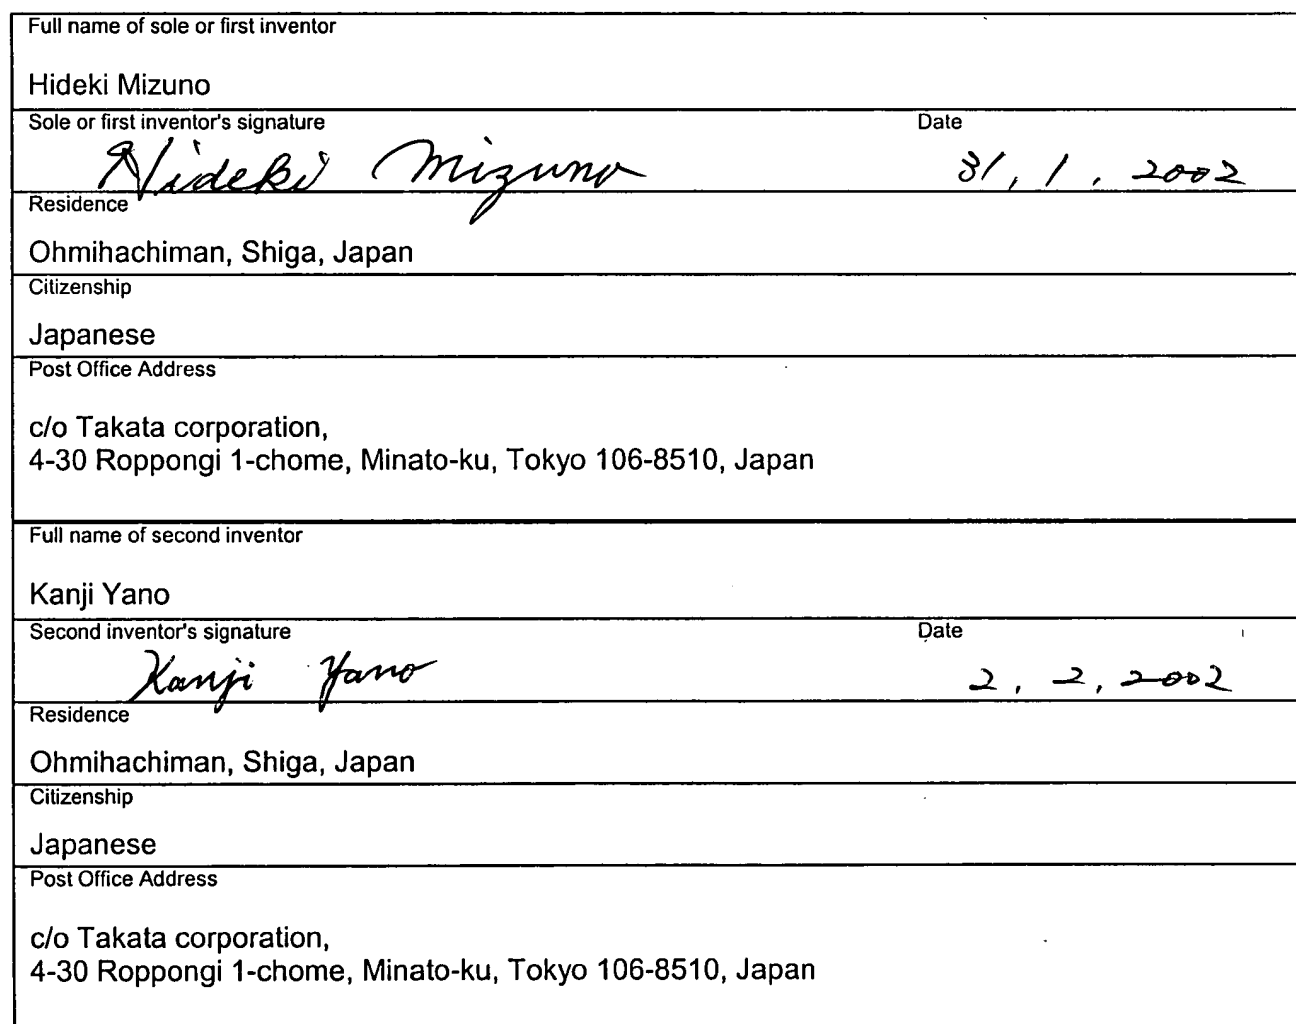 Full name of sole or first inventor
Hideki Mizuno
Sole or first inventor's signature Date
Hideki Mizuno 31, 1, 2002
Residence
Ohmihachiman, Shiga, Japan
Citizenship
Japanese
Post Office Address
c/o Takata corporation,
4-30 Roppongi 1-chome, Minato-ku, Tokyo 106-8510, Japan
Full name of second inventor
Kanji Yano
Second inventor's signature Date
Kanji Yano 2, 2, 2002
Residence
Ohmihachiman, Shiga, Japan
Citizenship
Japanese
Post Office Address
c/o Takata corporation,
4-30 Roppongi 1-chome, Minato-ku, Tokyo 106-8510, Japan